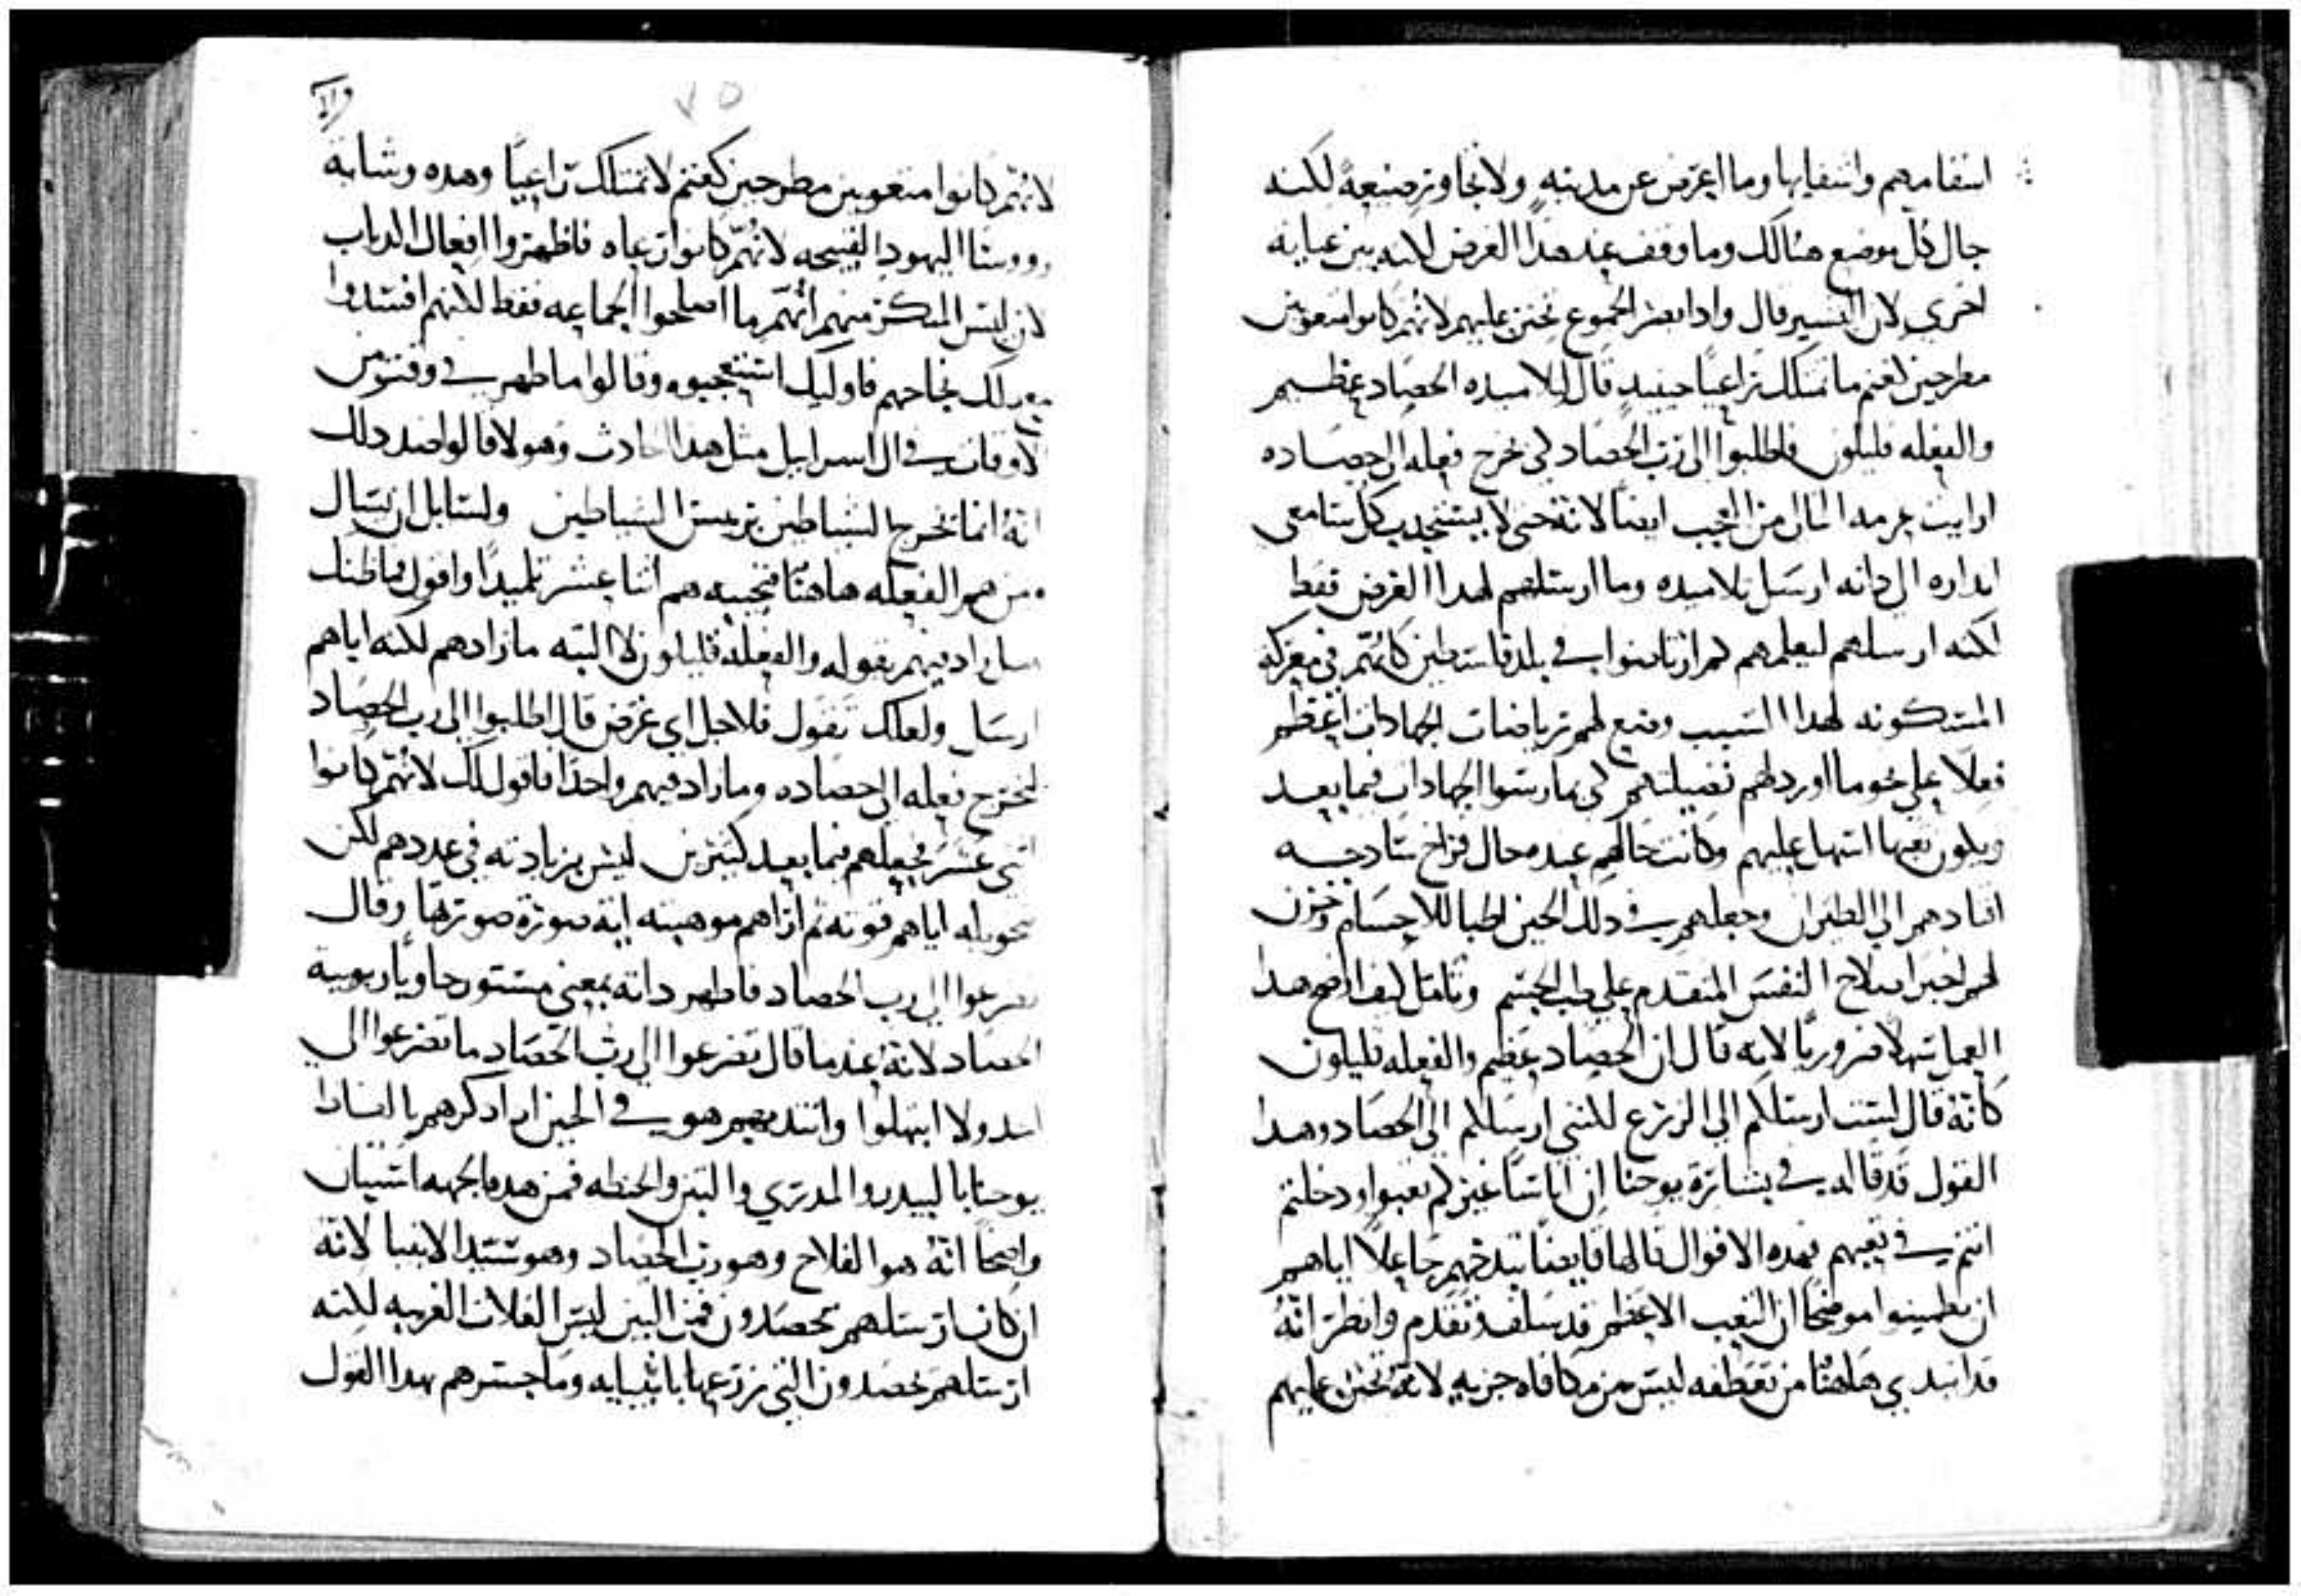 اسقامهم واشفايها وما اعرض عن مدينه ولا تجاوز ضيعة لكنه
جال كل موضع هنالك وما وقف عند هدا الغرض لانه بين عنايه
اخري لان البشير قال وادا بصر الجموع تحنن عليهم لانهم كانوا متعوبين
مطرحين كغنم ما تمتلك راعيا حينيد قال لتلاميده الحصاد عظيم
والفعله قليلون فاطلبوا الي رب الحصاد لكي يخرج فعله الي حصاده
ارايت عدمه المال من العجب ايضا لانه حتي لا يستجدب كل سامعي
انداره الي داته ارسل تلاميده وما ارسلهم لهدا الغرض فقط
لكنه ارسلهم ليعلمهم لم ارتاضوا في بلد فلسطين كانهم في معركه
المسكونه لهدا السبب وضع لهم رياضات الجهادات اعظم
فعلا علي نحو ما اوردهم فضيلتهم لكي يمارسوا الجهادات فيما بعد
ويكون تعبها اسهل عليهم وكانت حالهم عنده حال فراخ سادجه
اقتادهم الي الطيران وجعلهم في دلك الحين اطبا للاجسام وخزن
لهم اخيرا صلاح النفس المتقدم علي طب الجسم وتامل كيف اوضح هدا
العمل سهلا ضروريا لانه قال ان الحصاد عظيم والفعله قليلون
كانه قال لست ارسلكم الي الزرع لكنني ارسلكم الي الحصاد وهدا
القول قد قاله في بشارة يوحنا ان اناسا غيركم تعبوا ودخلتم
انتم في تعبهم فهده الاقوال قالها قامعا بدخهم جاعلا اياهم
ان يطمينوا موضحا ان التعب الاعظم قد سلف وتقدم وانظر انه
قد ابتدي هاهنا من تعطفه ليس من مكافاه جزيه لانه تحنن عليهم
٧٥
لانهم كانوا متعوبين مطرحين كغنم لا تمتلك راعيا وهده وشاية
روسا اليهود القبيحه لانهم كانوا رعاه فاظهروا افعال الدياب
لان ليس المنكر منهم انهم ما اصلحوا الجماعه فقط لكنهم افسدوا
مع دلك نجاحهم فاوليك استعجبوه وقالوا ما ظهر في وقت من
الاوقات في ال اسراييل مثل هدا الحادث وهولا قالوا ضد دلك
انه انما يخرج الشياطين بريس الشياطين ولسايل ان يسال
من هم الفعله هاهنا فنجيبه هم اثنا عشر تلميدا واقول فما ظنك
هل زاد فيهم بقوله والفعله قليلون لا البته ما زادهم لكنه اياهم
ارسل ولعلك تقول فلاجل اي غرض قال اطلبوا الي رب الحصاد
ليخرج فعله الي حصاده وما زاد فيهم واحدا فاقول لك لانهم كانوا
اثني عشر فجعلهم فيما بعد كثيرين ليس بزيادته في عددهم لكن
بتخويله اياهم قوته ثم اراهم موهبته اية صورة صورتها وقال
تضرعوا الي رب الحصاد فاظهر داته بمعني مستور حاويا ربوبية
الحصاد لانه عندما قال تضرعوا الي رب الحصاد ما تضرعوا الي
ولا ابتهلوا وهو في الحين اد ادكرهم بالفاظ
يوحنا بالبيدر والمدري والتبن والحنطه فمن هده الجهه استبان
واضحا انه هو الفلاح وهو رب الحصاد وهو سيد الانبيا لانه
ان كان ارسلهم يحصدون فمن البين ليس الغلات الغريبه لكنه
ارسلهم يحصدون التي زرعها بانبيايه وما جسرهم بهدا القول